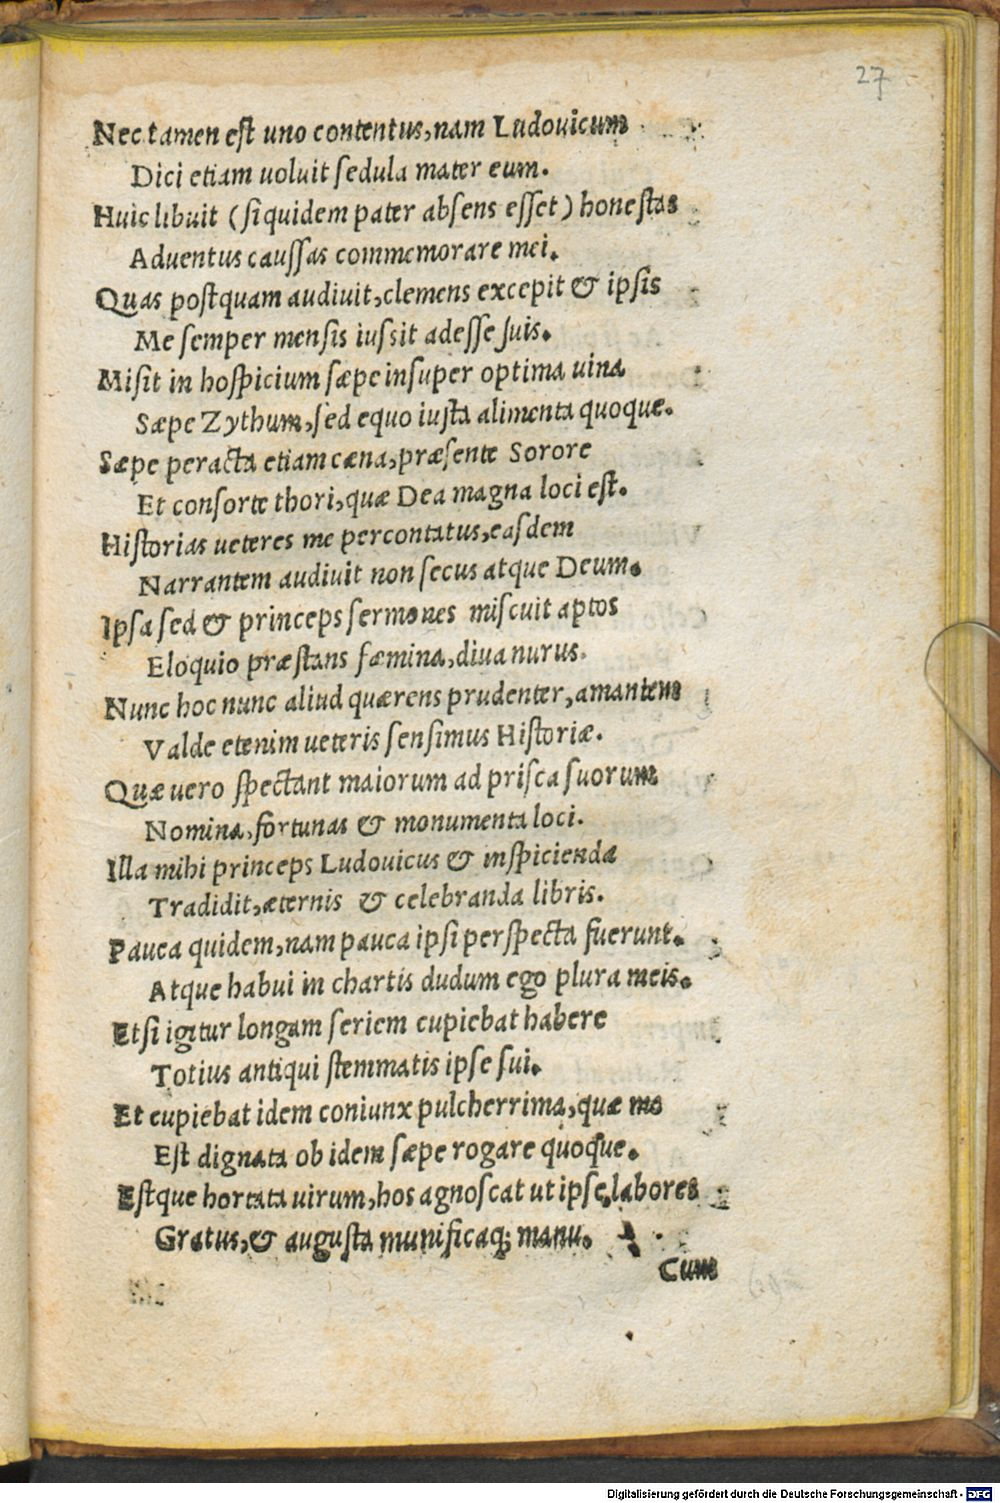 27
Nec tamen est uno contentus, nam Ludouicum
Dici etiam uoluit sedula mater eum.
Huic libuit (siquidem pater absens esset) honestas
Aduentus caussas commemorare mei.
Quas postquam audiuit, clemens excepit & ipsis
Me semper mensis iussit adesse suis.
Misit in hospicium sæpe insuper optima uina
Sæpe Zythum, sed equo iusta alimenta quoque.
Sæpe peracta etiam cæna, præsente Sorore
Et consorte thori, quæ Dea magna loci est.
Historias ueteres me percontatus, easdem
Narrantem audiuit non secus atque Deum.
Ipsa sed & princeps sermones miscuit aptos
Eloquio præstans fæmina, diua nurus.
Nunc hoc nunc aliud quærens prudenter, amantem
Valde etenim ueteris sensimus Historiæ.
Quæ uero spectant maiorum ad prisca suorum
Nomina, fortunas & monumenta loci.
Illa mihi princeps Ludouicus & inspicienda
Tradidit, æternis & celebranda libris.
Pauca quidem, nam pauca ipsi perspecta fuerunt.
Atque habui in chartis dudum ego plura meis.
Etsi igitur longam seriem cupiebat habere
Totius antiqui stemmatis ipse sui.
Et cupiebat idem coniunx pulcherrima, quæ me
Est dignata ob idem sæpe rogare quoque.
Estque hortata uirum, hos agnoscat ut ipse, labores
Gratus, & augusta munificaq; manu.
Cum
Digitalisierung gefördert durch die Deutsche Forschungsgemeinschaft - DFG